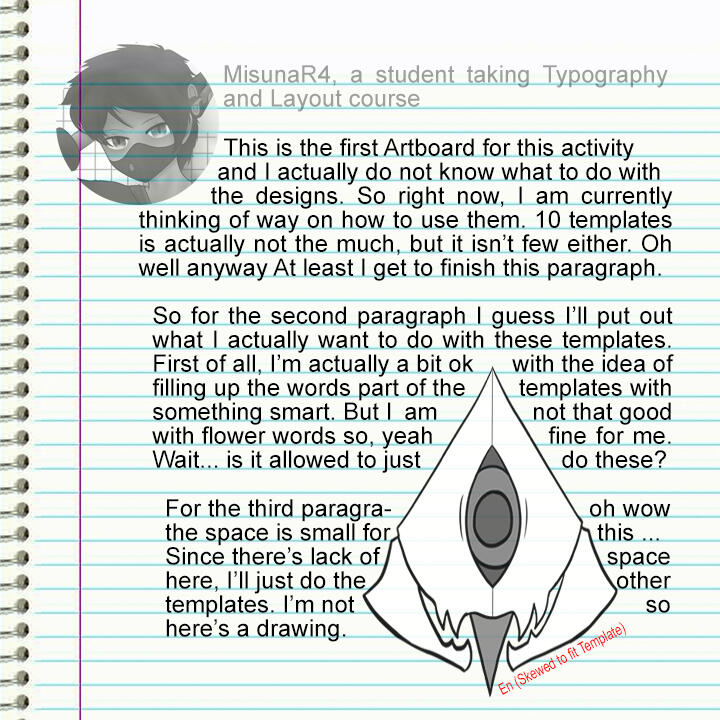 MisunaR4, a student taking Typography
and Layout course
This is the first Artboard for this activity
and I actually do not know what to do with
the designs. So right now, I am currently
thinking of way on how to use them. 10 templates
is actually not the much, but it isn't few either. Oh
well anyway At least I get to finish this paragraph.
So for the second paragraph I guess I'll put out
what I actually want to do with these templates.
First of all, I'm actually a bit ok with the idea of
filling up the words part of the templates with
something smart. But I am not that good
with flower words so, yeah fine for me.
Wait... is it allowed to just do these?
For the third paragra- oh wow
the space is small for this ...
Since there's lack of space
here, I'll just do the other
templates. I'm not so
here's a drawing.
En (Skewed to fit Template)